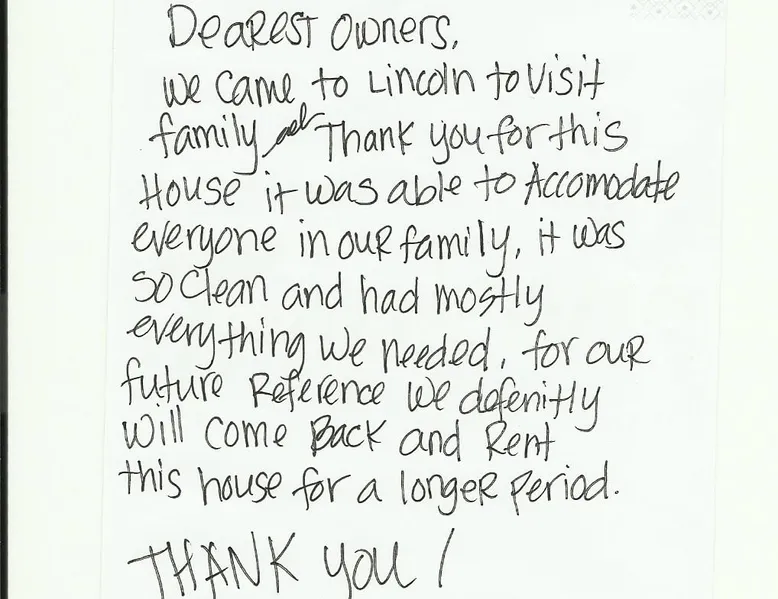 Dearest Owners,
We came to Lincoln to visit
family Thank you for this
House it was able to Accomodate
everyone in our family, it was
so clean and had mostly
everything we needed, for our
future Reference we defenitly
will come Back and Rent
this house for a longer period.
THANK YOU!